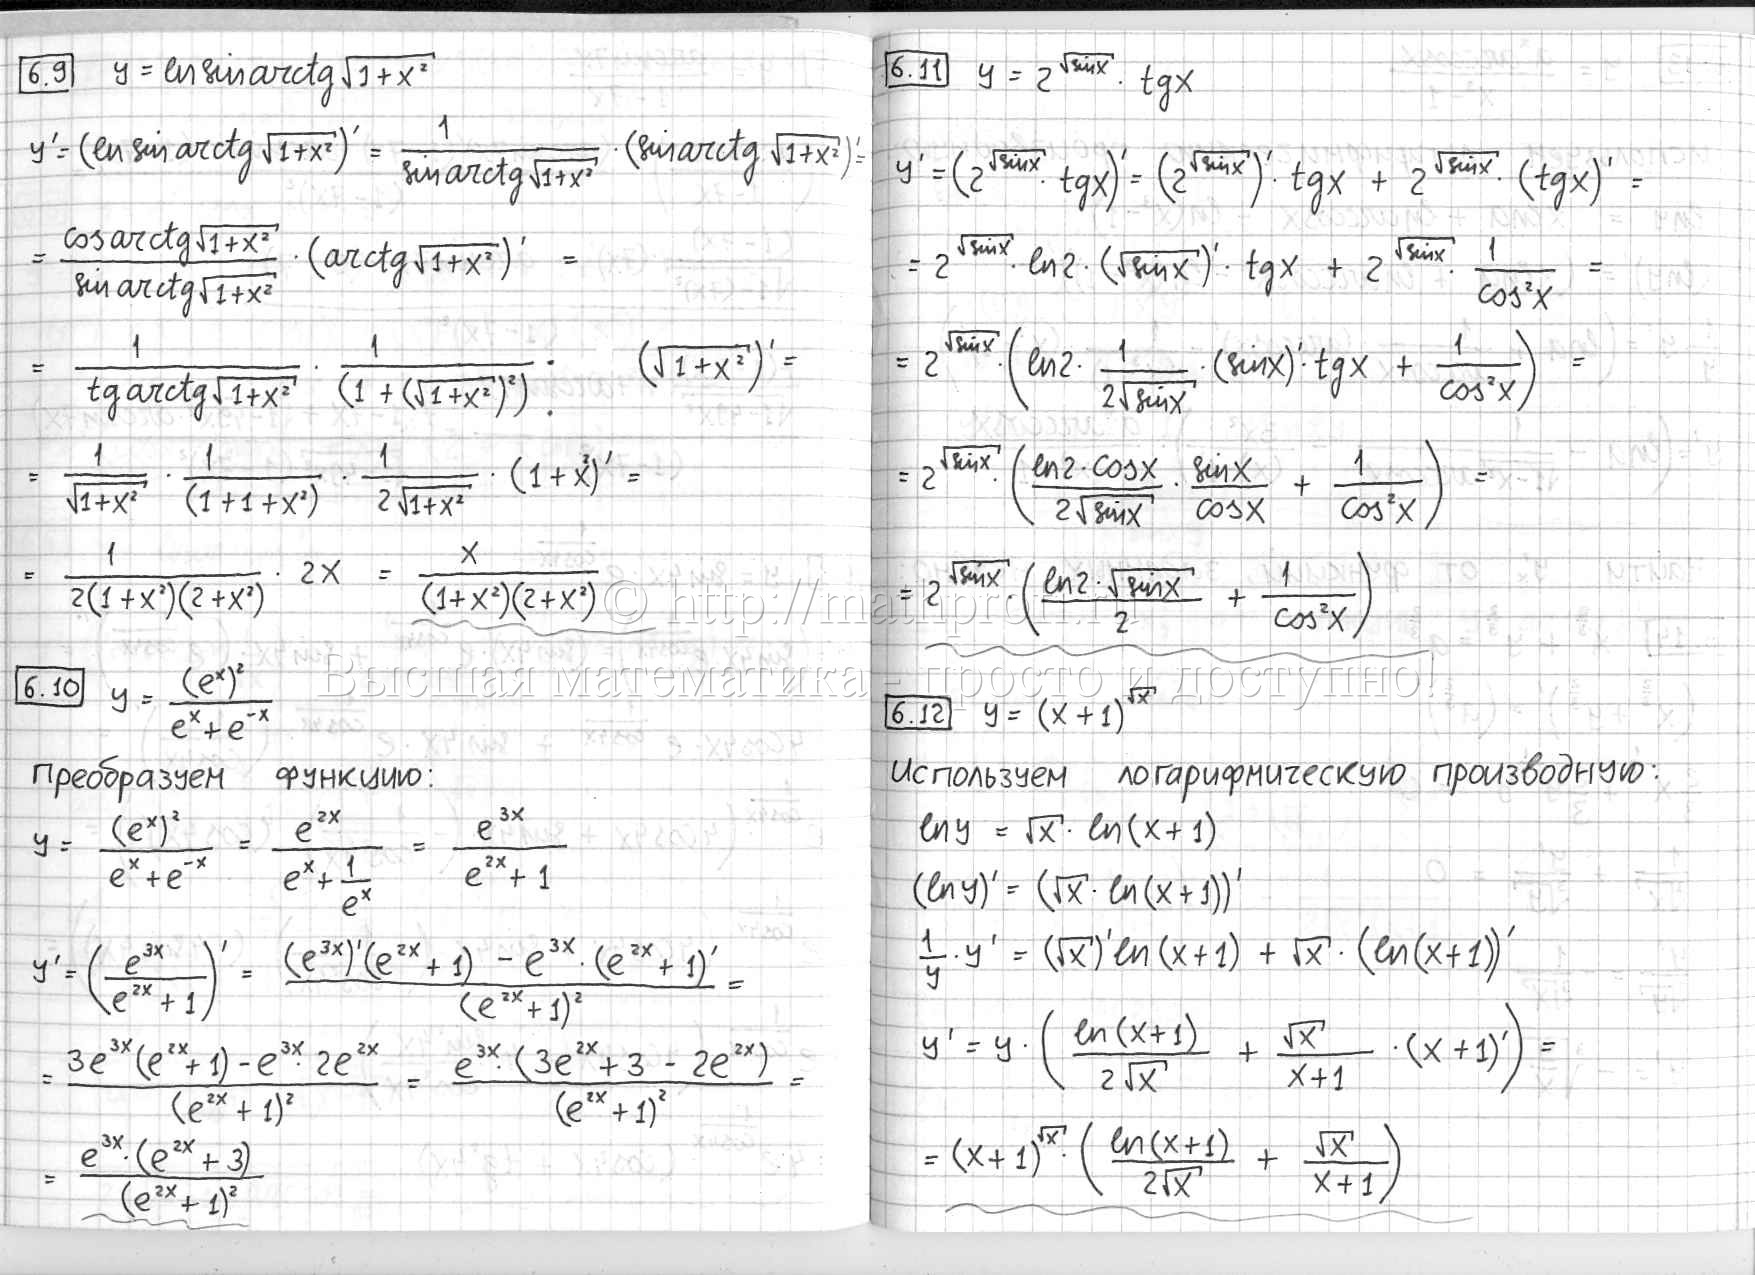 6.9 y = ln sin arctg √(1+x²)
y' = (ln sin arctg √(1+x²))' = 1/(sin arctg √(1+x²)) · (sin arctg √(1+x²))' =
= (cos arctg √(1+x²))/(sin arctg √(1+x²)) · (arctg √(1+x²))' =
= 1/(tg arctg √(1+x²)) · 1/(1 + (√(1+x²))²) · (√(1+x²))' =
= 1/√(1+x²) · 1/(1+1+x²) · 1/(2√(1+x²)) · (1+x²)' =
= 1/(2(1+x²)(2+x²)) · 2x = x/((1+x²)(2+x²))
6.10 y = (eˣ)²/(eˣ+e⁻ˣ)
Преобразуем функцию:
y = (eˣ)²/(eˣ+e⁻ˣ) = e²ˣ/(eˣ + 1/eˣ) = e³ˣ/(e²ˣ+1)
y' = (e³ˣ/(e²ˣ+1))' = ((e³ˣ)'(e²ˣ+1) - e³ˣ·(e²ˣ+1)')/(e²ˣ+1)² =
= (3e³ˣ(e²ˣ+1) - e³ˣ·2e²ˣ)/(e²ˣ+1)² = (e³ˣ·(3e²ˣ+3-2e²ˣ))/(e²ˣ+1)² =
= (e³ˣ·(e²ˣ+3))/(e²ˣ+1)²
6.11 y = 2^√(sinx) · tgx
y' = (2^√(sinx) · tgx)' = (2^√(sinx))' · tgx + 2^√(sinx) · (tgx)' =
= 2^√(sinx) · ln2 · (√(sinx))' · tgx + 2^√(sinx) · 1/cos²x =
= 2^√(sinx) · (ln2 · 1/(2√(sinx)) · (sinx)' · tgx + 1/cos²x) =
= 2^√(sinx) · ((ln2·cosx)/(2√(sinx)) · sinx/cosx + 1/cos²x) =
= 2^√(sinx) · ((ln2·√(sinx))/2 + 1/cos²x)
6.12 y = (x+1)^√x
Используем логарифмическую производную:
ln y = √x · ln(x+1)
(ln y)' = (√x · ln(x+1))'
1/y · y' = (√x)' ln(x+1) + √x · (ln(x+1))'
y' = y · (ln(x+1)/(2√x) + √x/(x+1) · (x+1)') =
= (x+1)^√x · (ln(x+1)/(2√x) + √x/(x+1))
© http://mathprofi.ru
Высшая математика - просто и доступно!